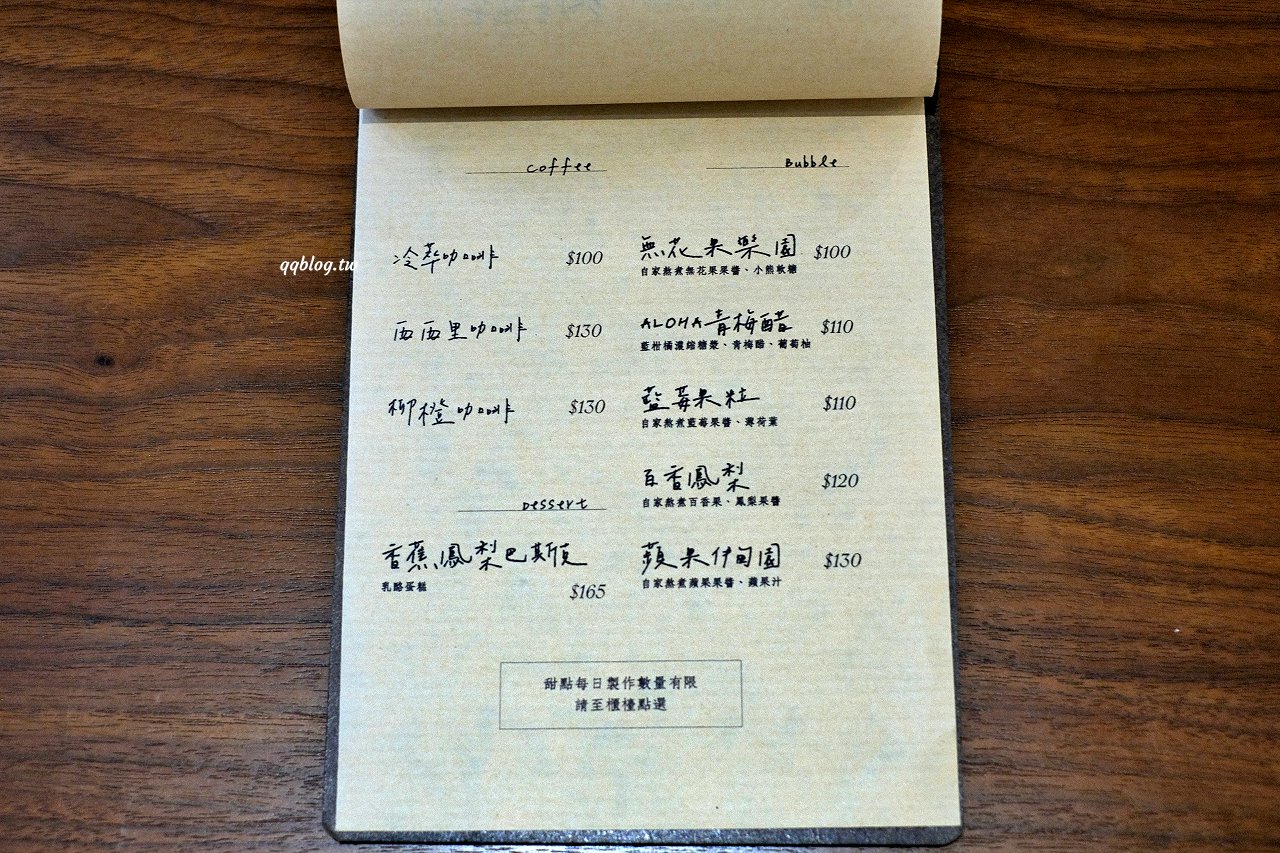 Coffee
冷萃咖啡 $100
西西里咖啡 $130
柳橙咖啡 $130
Dessert
香蕉鳳梨巴斯克
乳酪蛋糕
$165
Bubble
無花果樂園 $100
自家熬煮無花果果醬、小熊軟糖
ALOHA青梅醋 $110
藍柑橘濃縮糖漿、青梅醋、葡萄柚
藍莓果粒 $110
自家熬煮藍莓果醬、薄荷葉
百香鳳梨 $120
自家熬煮百香果、鳳梨果醬
蘋果伊甸園 $130
自家熬煮蘋果果醬、蘋果汁
甜點每日製作數量有限
請至櫃檯點選
qqblog.tw